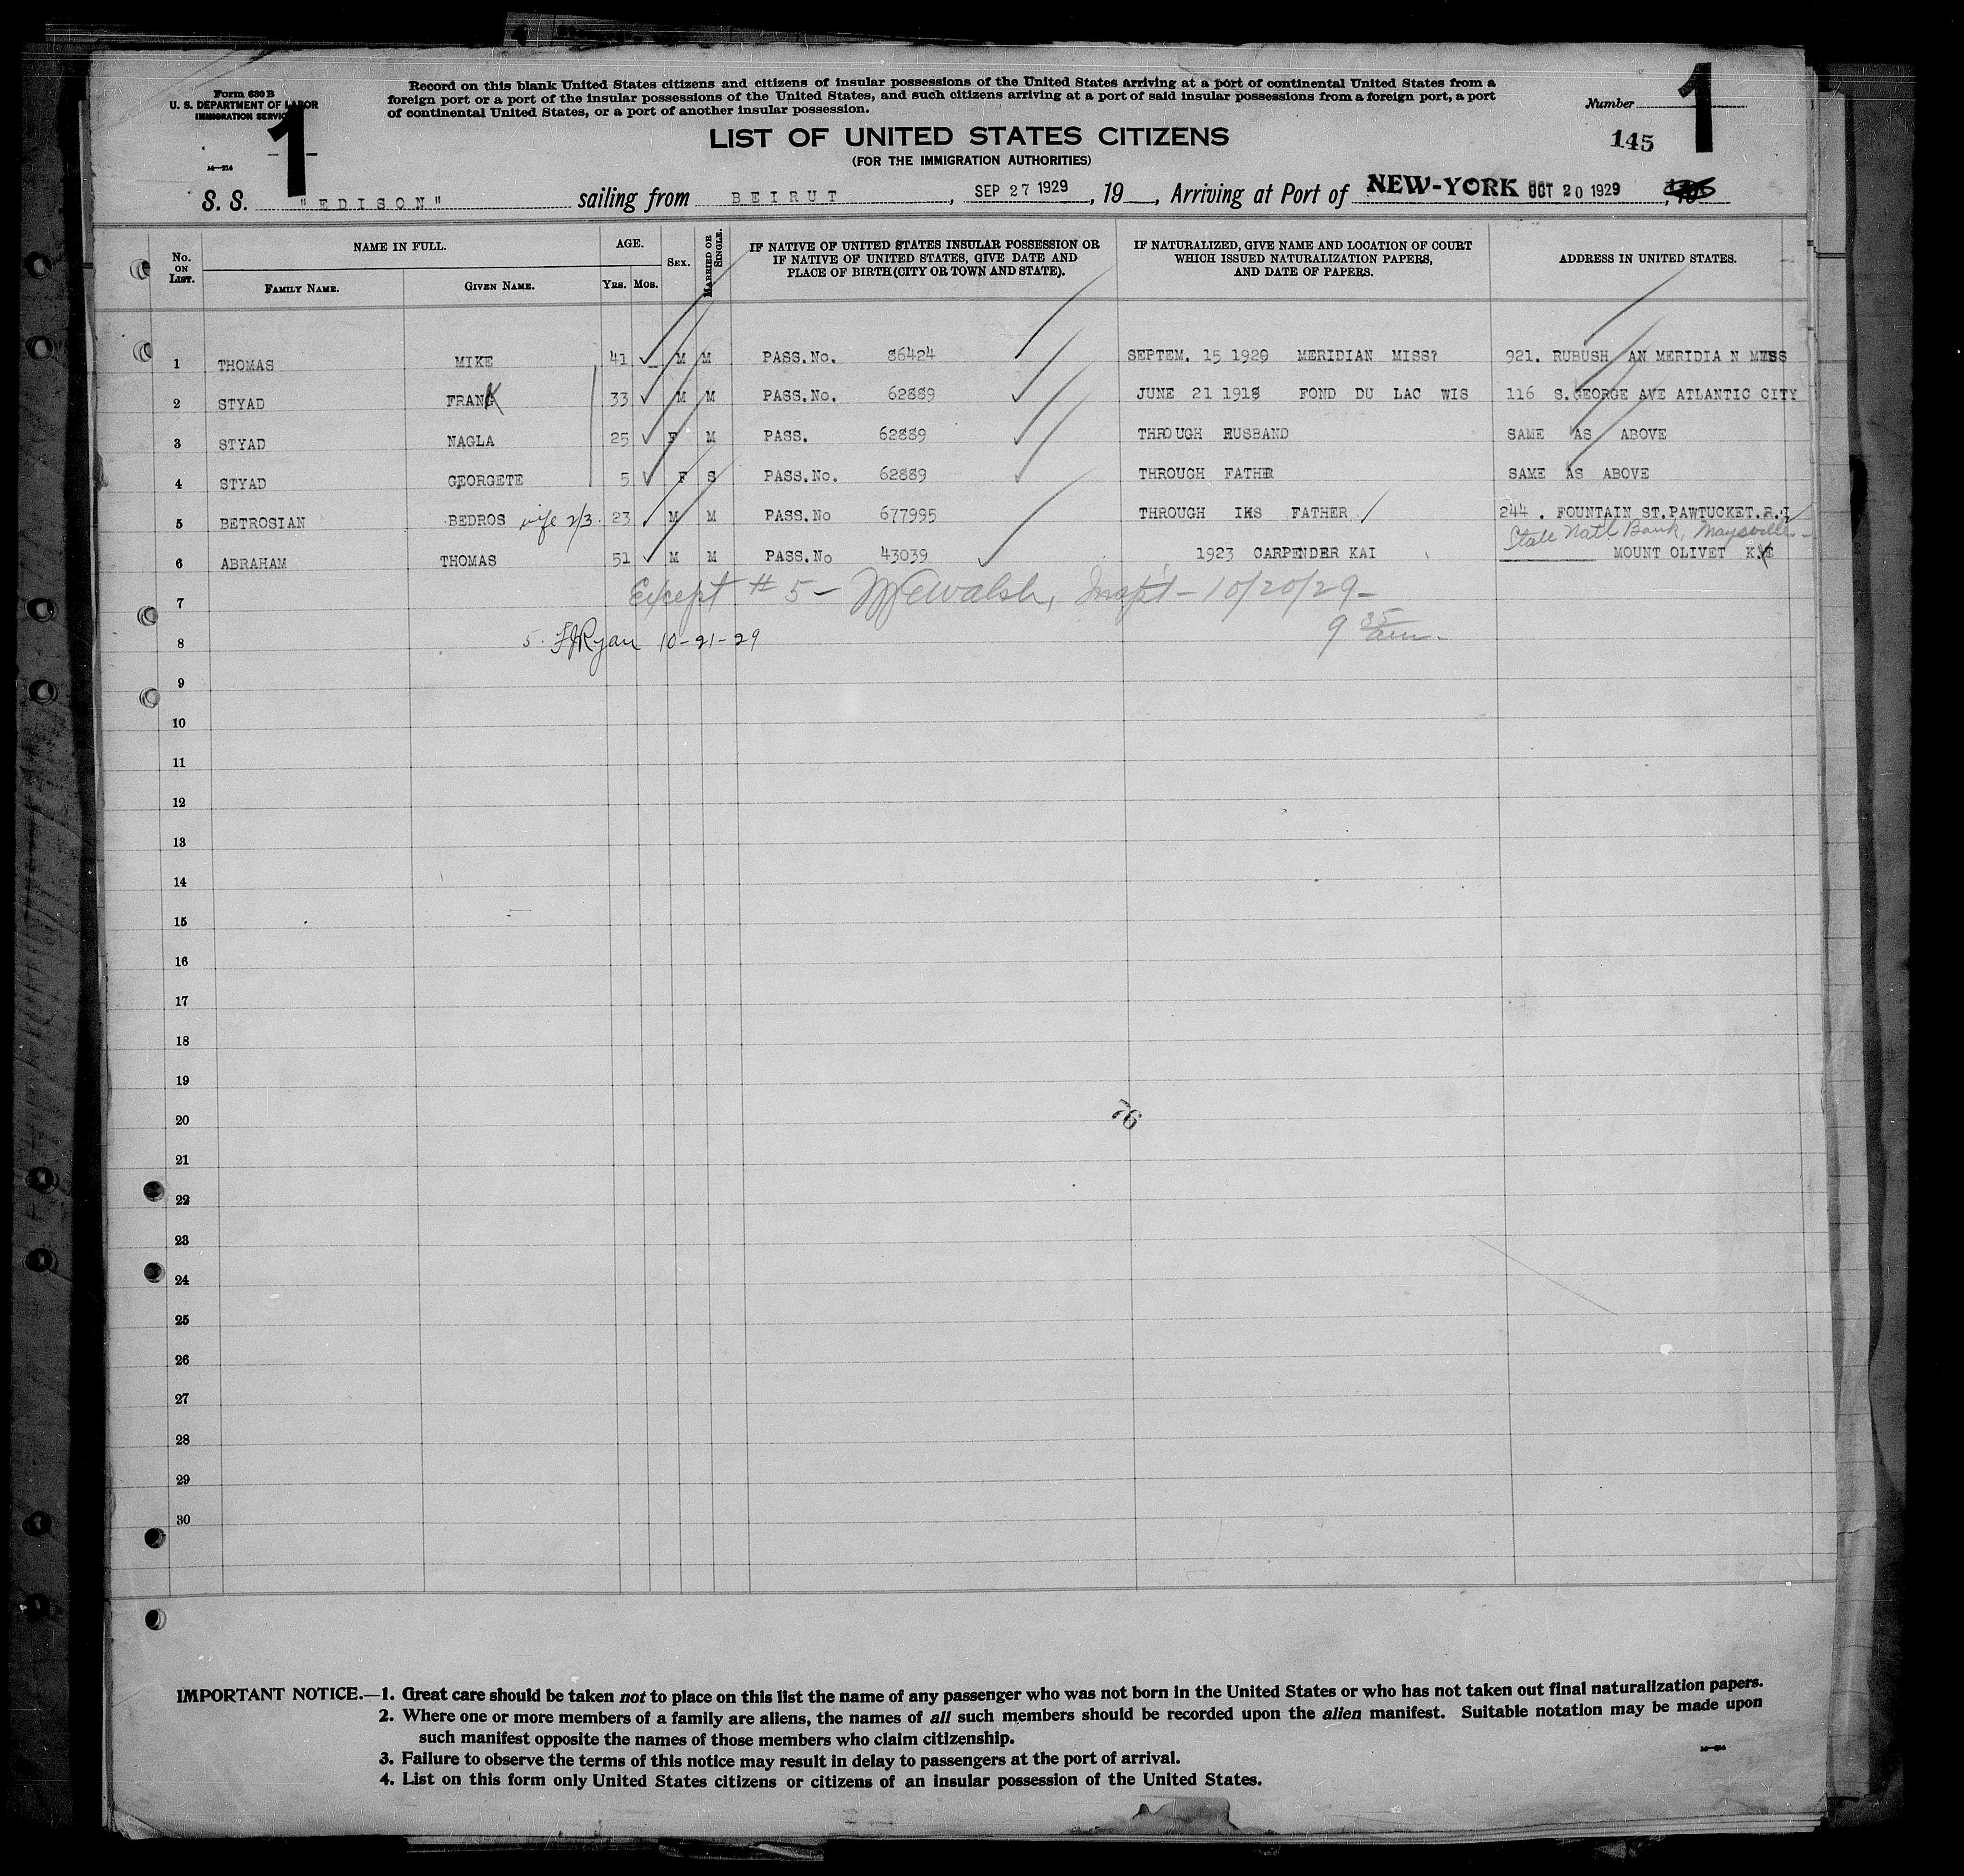 Form 630 B
U. S. DEPARTMENT OF LABOR
IMMIGRATION SERVICE
14—214
1
Record on this blank United States citizens and citizens of insular possessions of the United States arriving at a port of continental United States from a
foreign port or a port of the insular possessions of the United States, and such citizens arriving at a port of said insular possessions from a foreign port, a port
of continental United States, or a port of another insular possession.
Number 1
145
LIST OF UNITED STATES CITIZENS
(FOR THE IMMIGRATION AUTHORITIES)
S. S. "EDISON" sailing from BEIRUT, SEP 27 1929, 19__, Arriving at Port of NEW-YORK OCT 20 1929
No. ON LIST. NAME IN FULL. AGE. SEX. MARRIED OR SINGLE. IF NATIVE OF UNITED STATES INSULAR POSSESSION OR IF NATIVE OF UNITED STATES, GIVE DATE AND PLACE OF BIRTH (CITY OR TOWN AND STATE). IF NATURALIZED, GIVE NAME AND LOCATION OF COURT WHICH ISSUED NATURALIZATION PAPERS, AND DATE OF PAPERS. ADDRESS IN UNITED STATES.
FAMILY NAME. GIVEN NAME. YRS. MOS.
1 THOMAS MIKE 41 M M PASS.No. 86424 SEPTEM. 15 1929 MERIDIAN MISS? 921. RUBUSH AN MERIDIA N MISS
2 STYAD FRANK 33 M M PASS.No. 62889 JUNE 21 1918 FOND DU LAC WIS 116 S.GEORGE AVE ATLANTIC CITY
3 STYAD NAGLA 25 F M PASS. 62889 THROUGH HUSBAND SAME AS ABOVE
4 STYAD GEORGETE 5 F S PASS.No. 62889 THROUGH FATHER SAME AS ABOVE
5 BETROSIAN BEDROS wife 2/3. 23 M M PASS.No 677995 THROUGH IHS FATHER 244 . FOUNTAIN ST.PAWTUCKET.R.I
State Natl Bank, Maysville
6 ABRAHAM THOMAS 51 M M PASS.No 43039 1923 CARPENDER KAI MOUNT OLIVET KY
7 Except # 5 – Walsh, Inspt – 10/20/29 –
9 35 am.
8 5. FJRyan 10-21-29
9
10
11
12
13
14
15
16
17
18
19
20
76
21
22
23
24
25
26
27
28
29
30
IMPORTANT NOTICE.—1. Great care should be taken not to place on this list the name of any passenger who was not born in the United States or who has not taken out final naturalization papers.
2. Where one or more members of a family are aliens, the names of all such members should be recorded upon the alien manifest. Suitable notation may be made upon
such manifest opposite the names of those members who claim citizenship.
3. Failure to observe the terms of this notice may result in delay to passengers at the port of arrival.
4. List on this form only United States citizens or citizens of an insular possession of the United States.